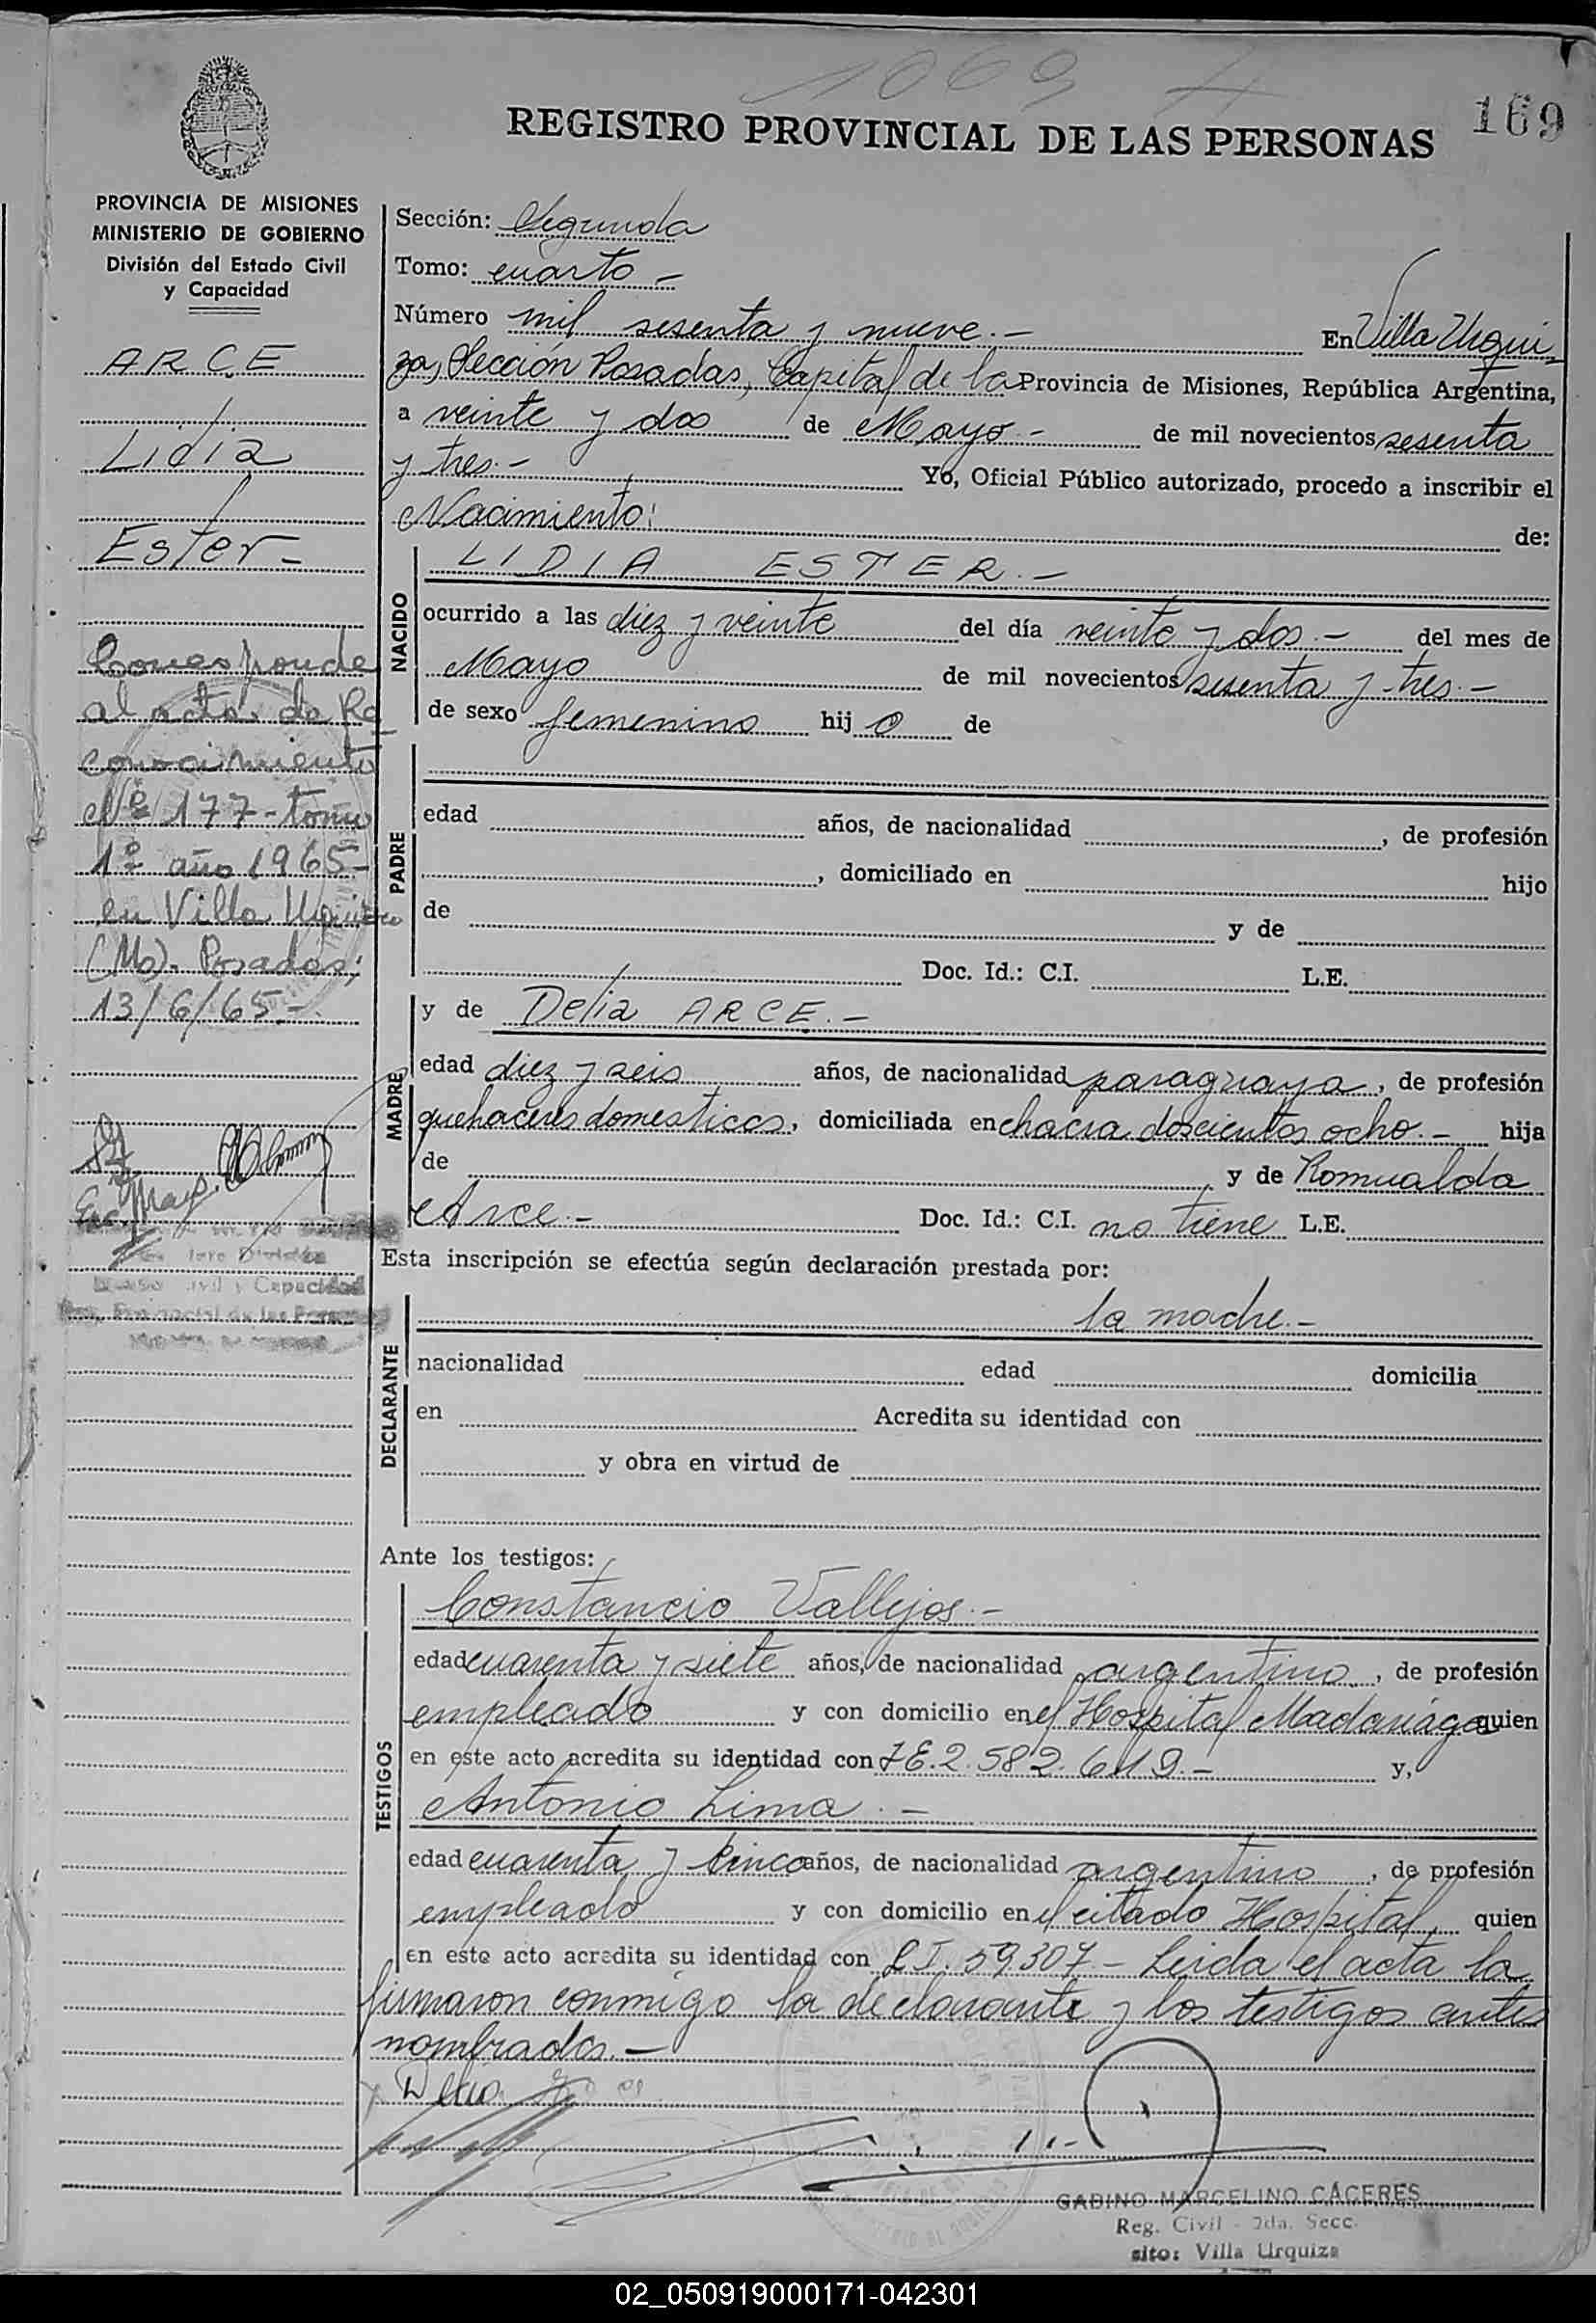 1069
169
REGISTRO PROVINCIAL DE LAS PERSONAS
PROVINCIA DE MISIONES
MINISTERIO DE GOBIERNO
División del Estado Civil
y Capacidad
ARCE
Lidia
Ester -
Corresponde
al acta de Re
conocimiento
Nº 177 - tomo
1º año 1965 -
en Villa Urquiza
(Mo). Posadas,
13/6/65.-
Capacidad
Sección: Segunda
Tomo: cuarto -
Número mil sesenta y nueve.- En Villa Urqui
za, Sección Posadas, Capital de la Provincia de Misiones, República Argentina,
a veinte y dos de Mayo.- de mil novecientos sesenta
y tres.- Yo, Oficial Público autorizado, procedo a inscribir el
Nacimiento: de:
NACIDO
LIDIA ESTER.-
ocurrido a las diez y veinte del día veinte y dos.- del mes de
Mayo de mil novecientos sesenta y tres.-
de sexo femenino hij o de
PADRE
edad años, de nacionalidad , de profesión
, domiciliado en hijo
de y de
Doc. Id.: C.I. L.E.
MADRE
y de Delia ARCE.-
edad diez y seis años, de nacionalidad paraguaya, de profesión
quehaceres domesticos, domiciliada en chacra doscientos ocho.- hija
de y de Romualda
Arce.- Doc. Id.: C.I. no tiene L.E.
Esta inscripción se efectúa según declaración prestada por:
DECLARANTE
la madre.-
nacionalidad edad domicilia
en Acredita su identidad con
y obra en virtud de
Ante los testigos:
TESTIGOS
Constancio Vallejos.-
edad cuarenta y siete años, de nacionalidad argentino, de profesión
empleado y con domicilio en el Hospital Madariaga quien
en este acto acredita su identidad con LE.2.582.619.- y,
Antonio Lima.-
edad cuarenta y cinco años, de nacionalidad argentino, de profesión
empleado y con domicilio en el citado Hospital, quien
en este acto acredita su identidad con 59307.- Leida el acta la
firmaron conmigo la declarante y los testigos antes
nombrados.-
Delia
GADINO MARCELINO CÁCERES
Reg. Civil - 2da. Secc.
sito: Villa Urquiza
02_050919000171-042301